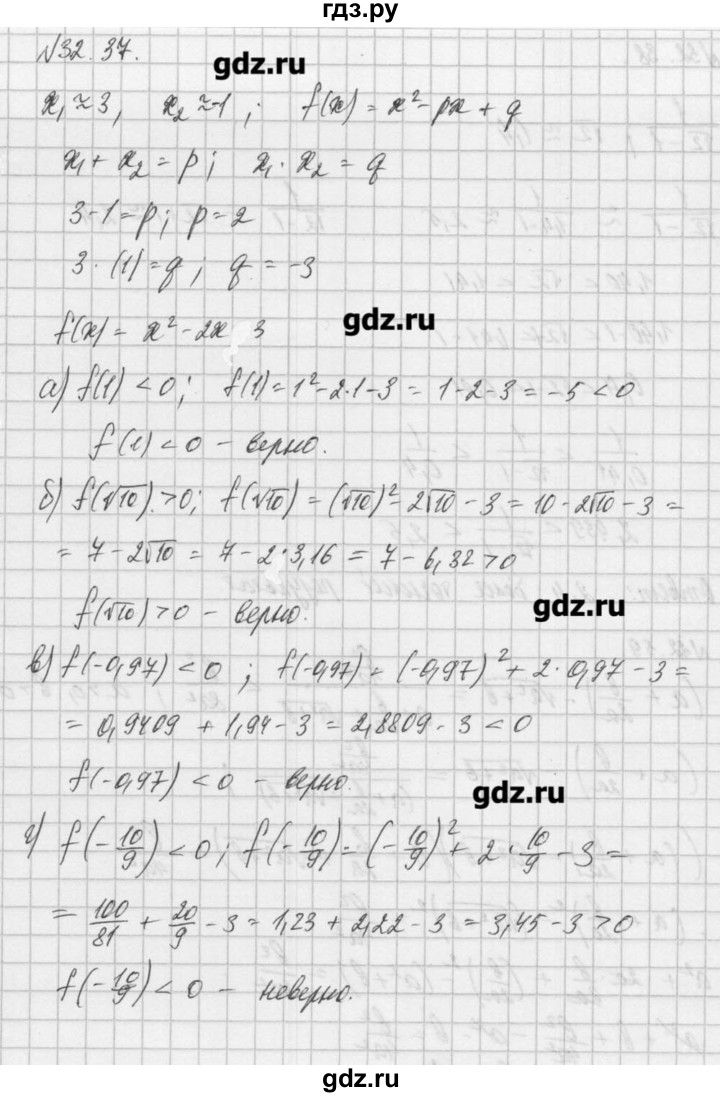 гдз.ру
№32.37.
gdz.ru
x₁ ≈ 3, x₂ ≈ -1 ; f(x) = x² - px + q
x₁ + x₂ = p ; x₁ · x₂ = q
3 - 1 = p ; p = 2
3 · (1) = q ; q = -3
f(x) = x² - 2x 3
gdz.ru
а) f(1) < 0 ; f(1) = 1² - 2·1 - 3 = 1 - 2 - 3 = -5 < 0
f(1) < 0 – верно.
б) f(√10) > 0 ; f(√10) = (√10)² - 2√10 - 3 = 10 - 2√10 - 3 =
= 7 - 2√10 = 7 - 2·3,16 = 7 - 6,32 > 0
gdz.ru
f(√10) > 0 – верно.
в) f(-0,97) < 0 ; f(-0,97) = (-0,97)² + 2·0,97 - 3 =
= 0,9409 + 1,94 - 3 = 2,8809 - 3 < 0
f(-0,97) < 0 – верно.
gdz.ru
г) f(-10/9) < 0 ; f(-10/9) = (-10/9)² + 2·10/9 - 3 =
= 100/81 + 20/9 - 3 = 1,23 + 2,22 - 3 = 3,45 - 3 > 0
f(-10/9) < 0 – неверно.
gdz.ru